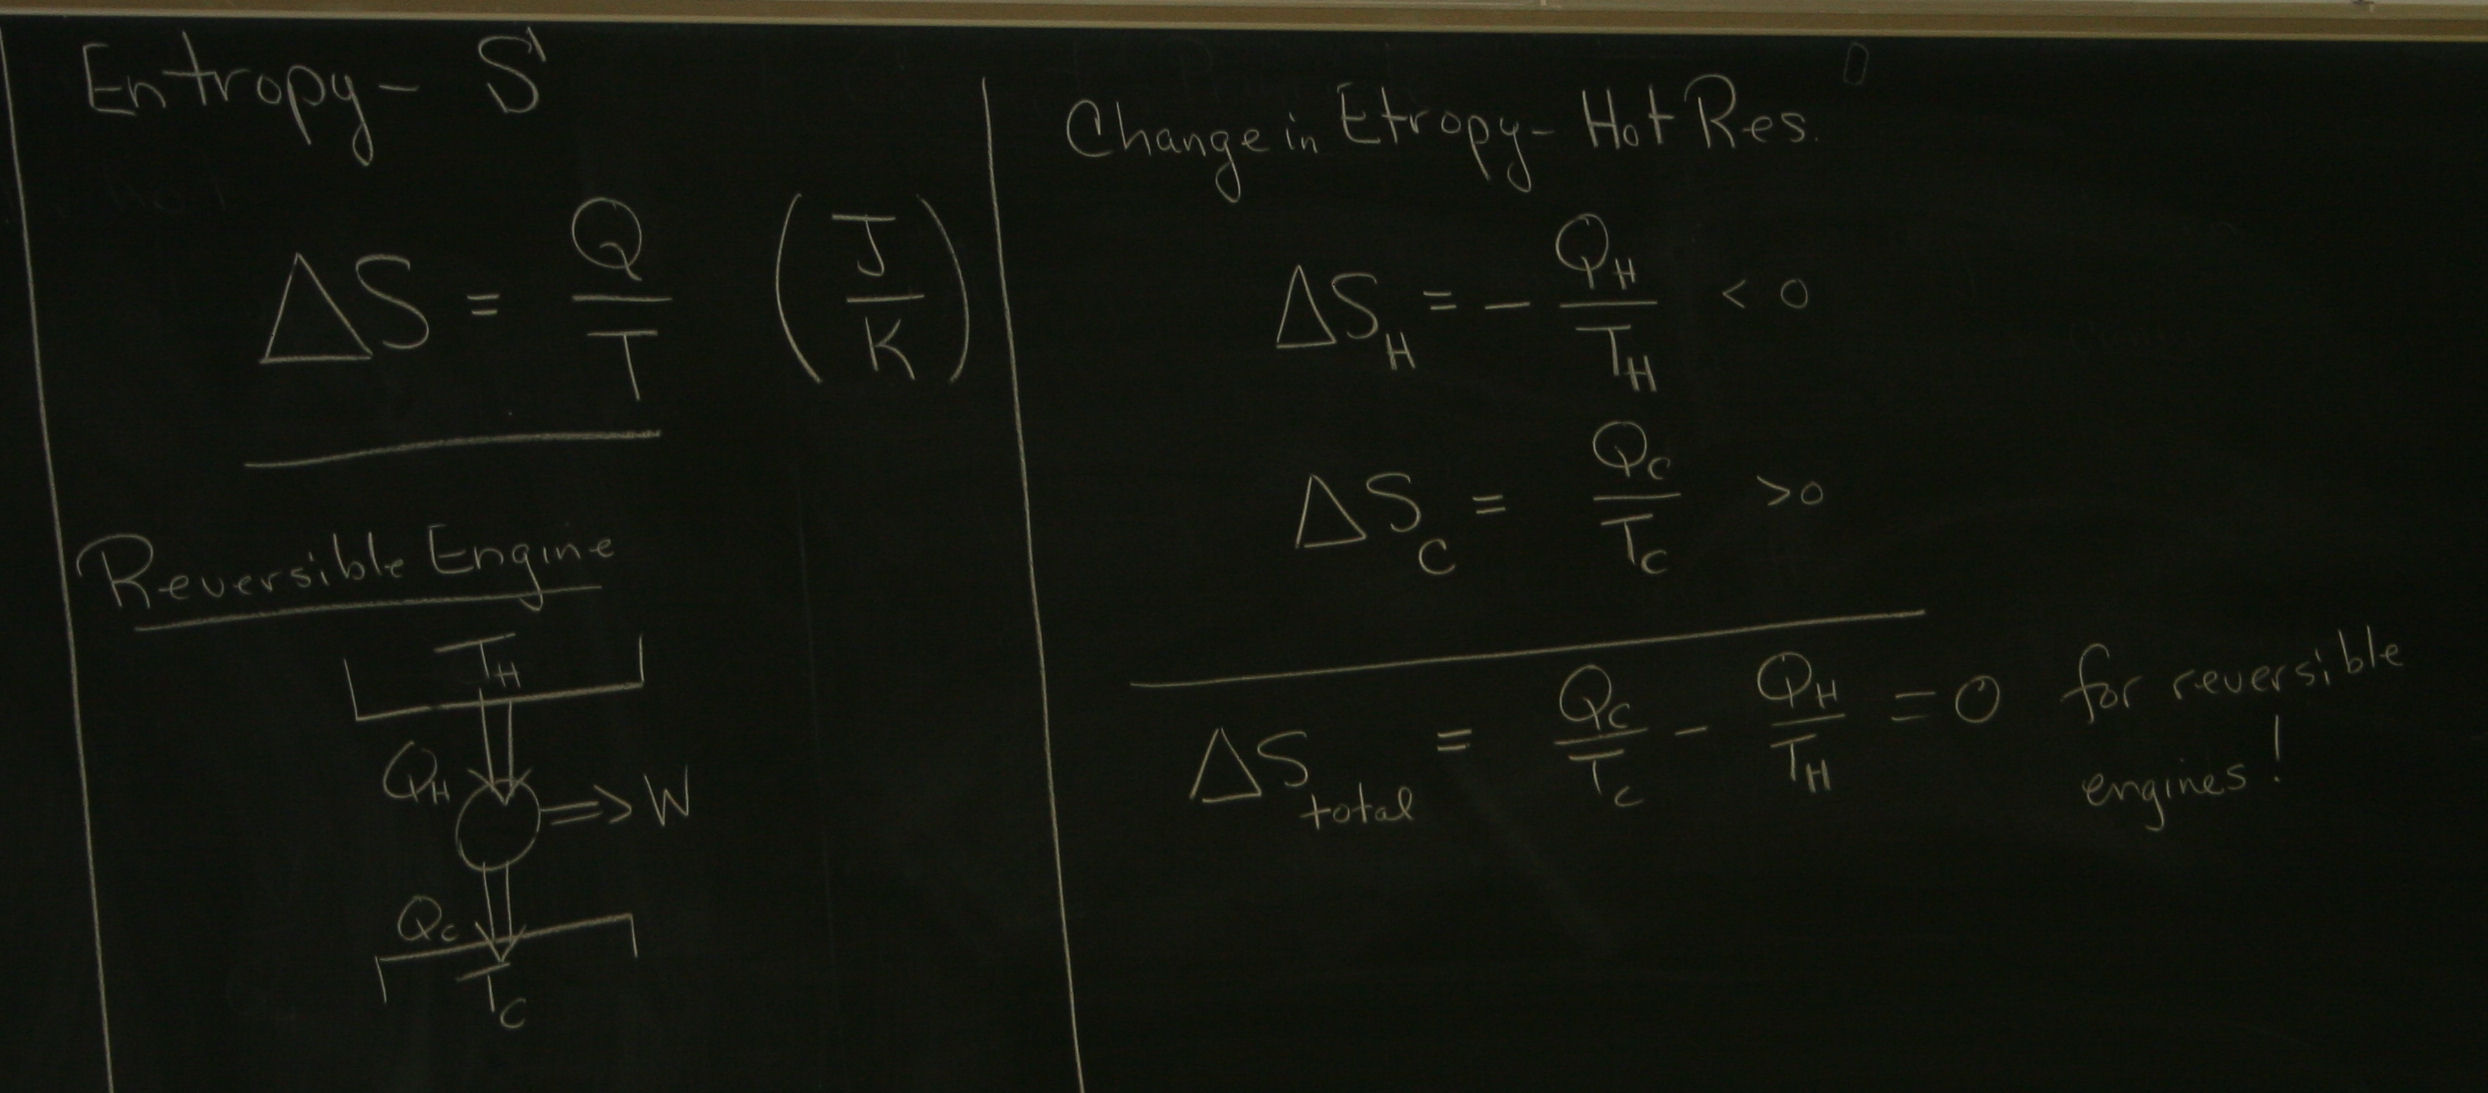 Entropy - S
ΔS = Q/T (J/K)
Reversible Engine
T_H
Q_H
⇒ W
Q_C
T_C
Change in Etropy - Hot Res.
ΔS_H = - Q_H/T_H < 0
ΔS_C = Q_C/T_C > 0
ΔS_total = Q_C/T_C - Q_H/T_H = 0 for reversible
engines!